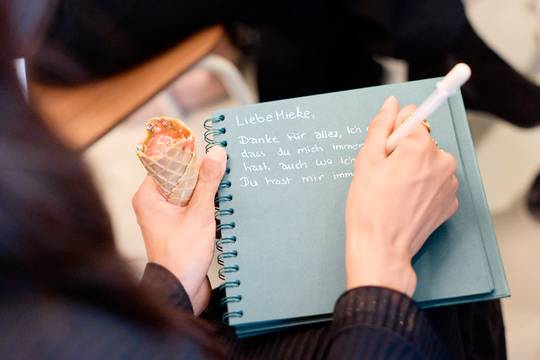 Liebe Mieke,
Danke für alles, Ich
dass du mich immer
hast, auch wo ich
Du hast mir imm